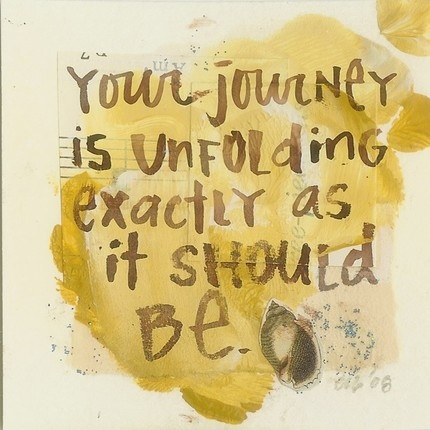 Your journey
is unfolding
exactly as
it should
Be.